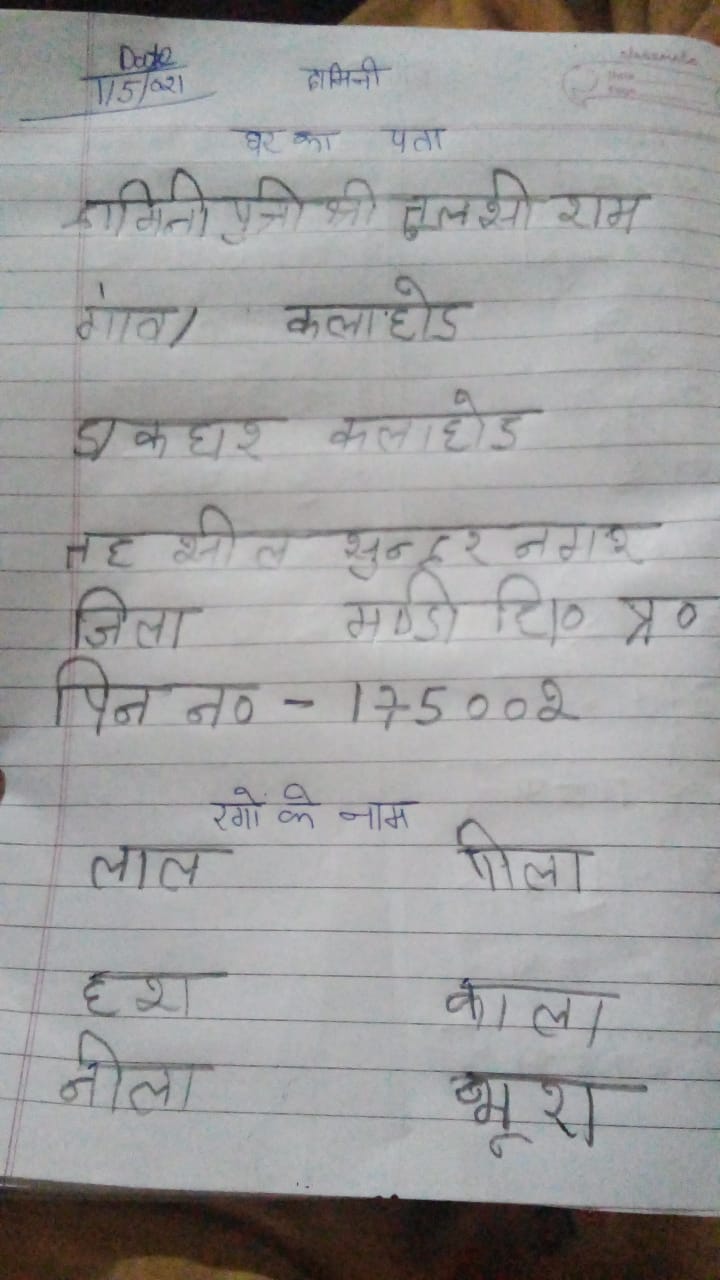 Date
1/5/021
दामिनी
घर का पता
दामिनी पुत्री श्री तुलसी राम
गांव कलाहोड
डाकघर कलाहोड
तहसील सुन्दर नगर
जिला मण्डी हि० प्र०
पिन न० - 175002
रंगों के नाम
लाल पीला
हरा काला
नीला भूरा